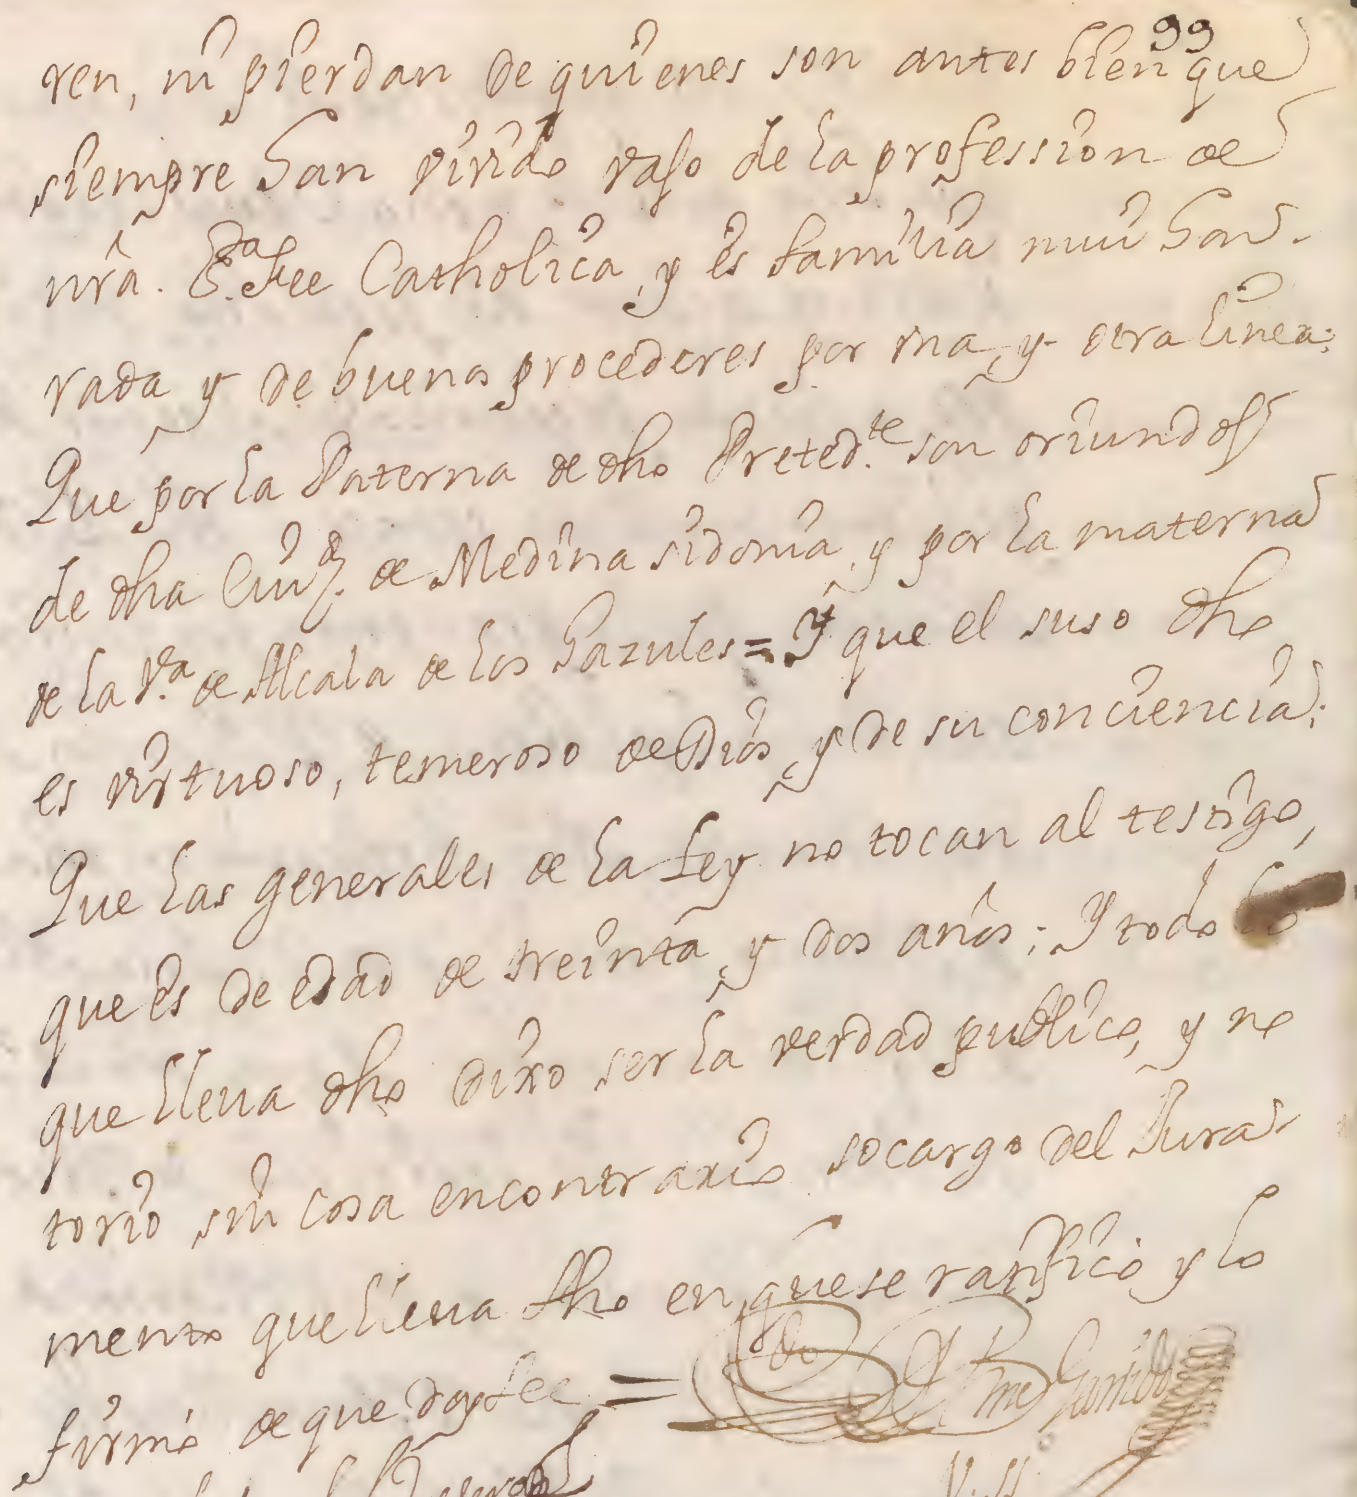 99
ren, ni pierdan de quienes son antes bien que
siempre han vivido vajo de la profession de
nrâ. S.ta fee Catholica, y es familia mui hon-
rada y de buenos procederes por vna, y otra linea;
Que por la Paterna de dho Preted.te son oriundos
de dha Ciud. de Medina sidonia, y por la materna
de la V.a de Alcala de los Gazules = Y que el suso dho
es virtuoso, temeroso de Dios, y de su conciencia;
Que las generales de la Ley no tocan al testigo,
que es de edad de treinta, y dos años; Y todo lo
que lleua dho dixo ser la verdad publico, y no
torio sin cosa encontrario socargo del Jura-
mento que lleua dho en que se ratificó y lo
firmó de que doy fee =
Garrido